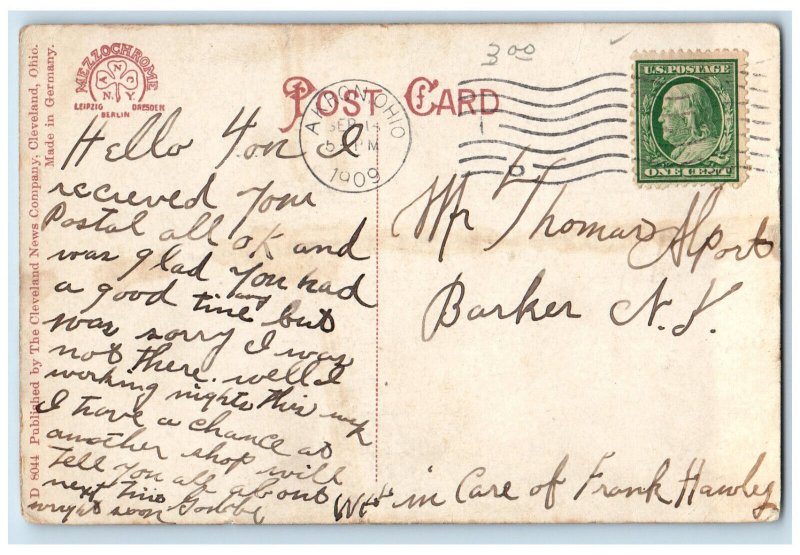 D 8044 Published by The Cleveland News Company, Cleveland, Ohio.
Made in Germany.
MEZZOCHROME
A N C
N.Y.
LEIPZIG DRESDEN
BERLIN
POST CARD
3.00
AKRON, OHIO
SEP 14
PM
1909
U.S. POSTAGE
ONE CENT
Hello Yon I
recieved Your
Postal all OK and
was glad You had
a good time but
was sorry I was
not there. well I
working nights this wek
I have a chance at
another shop will
tell You all about
next time
wright soon
Mr Thomas Alport
Barker N.Y.
in Care of Frank Hawley